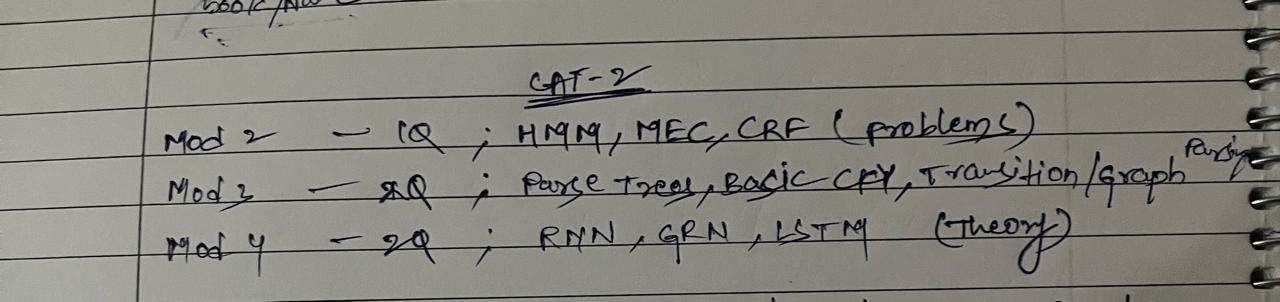 CAT-2
Mod 2 - 1Q ; HMM, MEC, CRF (problems)
Mod 3 - 2Q ; Parse Trees, Basic CFY, Transition/Graph Parsing
Mod 4 - 2Q ; RNN, GRN, LSTM (Theory)